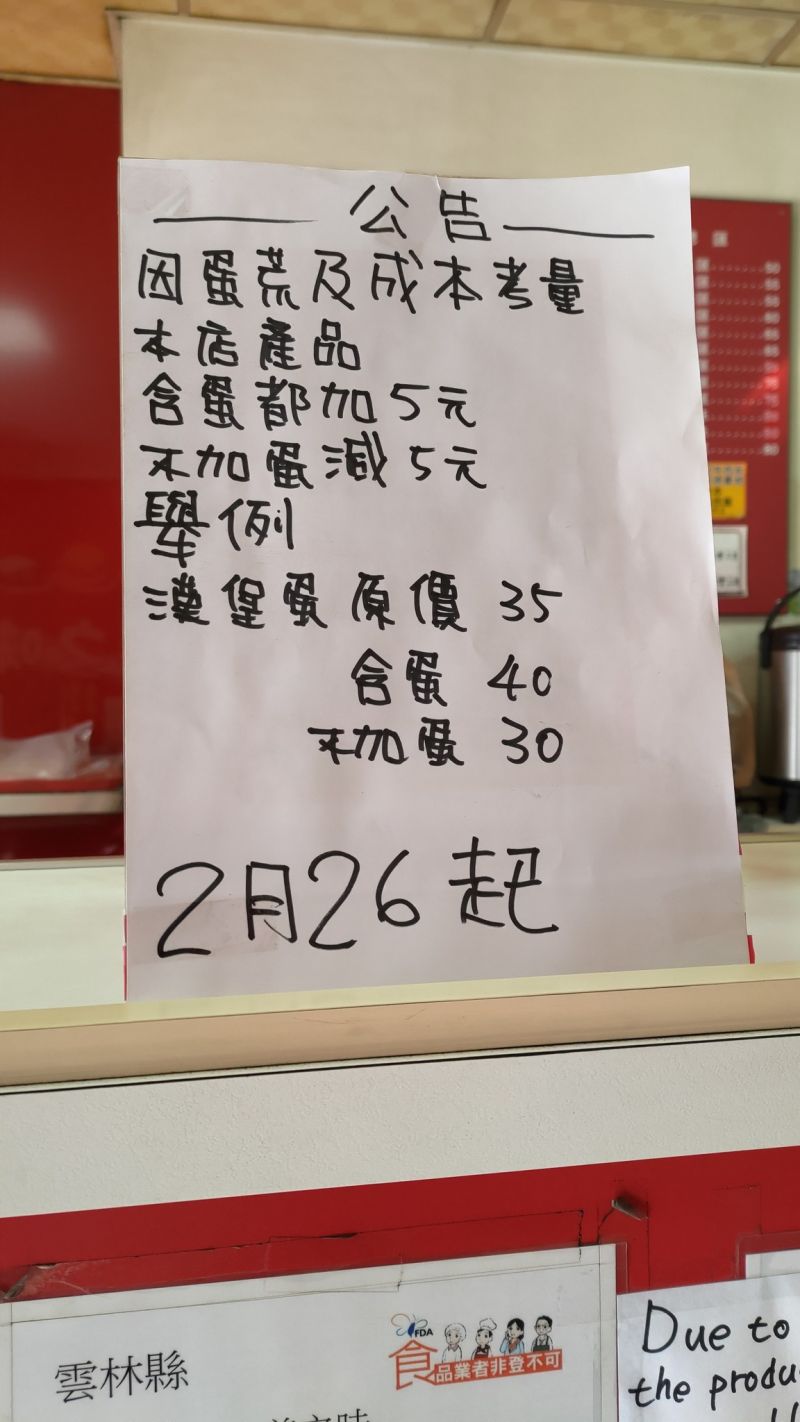 公告
因蛋荒及成本考量
本店產品
含蛋都加5元
不加蛋減5元
舉例
漢堡蛋原價 35
含蛋 40
不加蛋 30
2月26起
FDA
食品業者非登不可
雲林縣
Due to
the produ